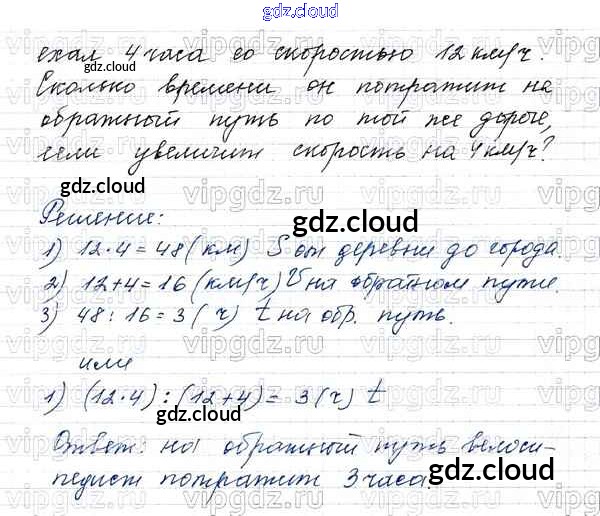 gdz.cloud
ехал 4 часа со скоростью 12 км/ч.
Сколько времени он потратит на
обратный путь по той же дороге,
если увеличит скорость на 4 км/ч?
Решение:
1) 12·4=48 (км) S от деревни до города.
2) 12+4=16 (км/ч) V на обратном пути.
3) 48:16=3 (ч) t на обр. путь.
или
1) (12·4):(12+4)= 3 (ч) t
Ответ: на обратный путь велоси-
педист потратит 3 часа.
gdz.cloud
gdz.cloud
gdz.cloud
gdz.cloud
gdz.cloud
gdz.cloud
gdz.cloud
gdz.cloud
gdz.cloud
gdz.cloud
vipgdz.ru